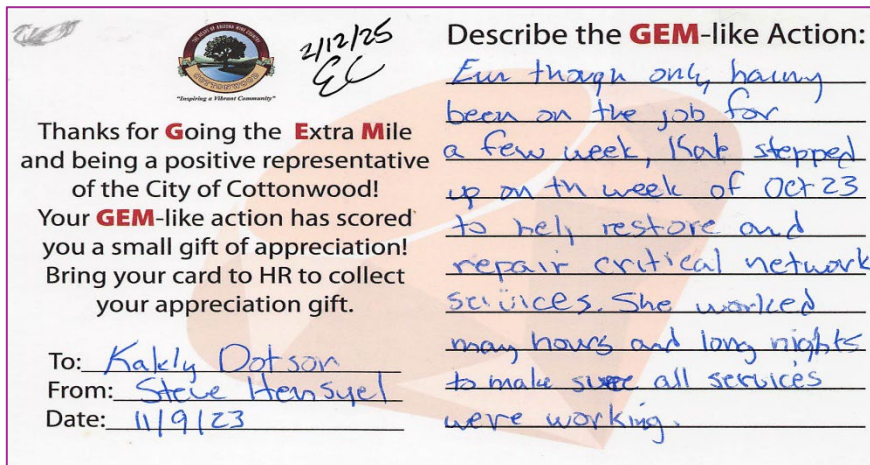 2/12/25
EC
THE HEART OF ARIZONA WINE COUNTRY
COTTONWOOD
"Inspiring a Vibrant Community"
Thanks for Going the Extra Mile
and being a positive representative
of the City of Cottonwood!
Your GEM-like action has scored
you a small gift of appreciation!
Bring your card to HR to collect
your appreciation gift.
To: Dotson
From: Steve
Date: 11/9/23
Describe the GEM-like Action:
though only having
been on the job for
a few week, stepped
up on th week of Oct 23
to help restore and
repair critical network
services. She worked
may hours and long nights
to make sure all services
were working.